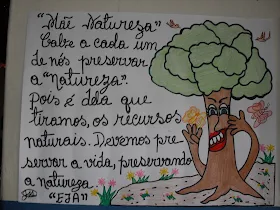 "Mãe Natureza"
Cabe a cada um
de nós preservar
a "natureza".
Pois é dela que
tiramos, os recursos
naturais. Devemos pre
servar a vida, preservando
a natureza.
"EJA"